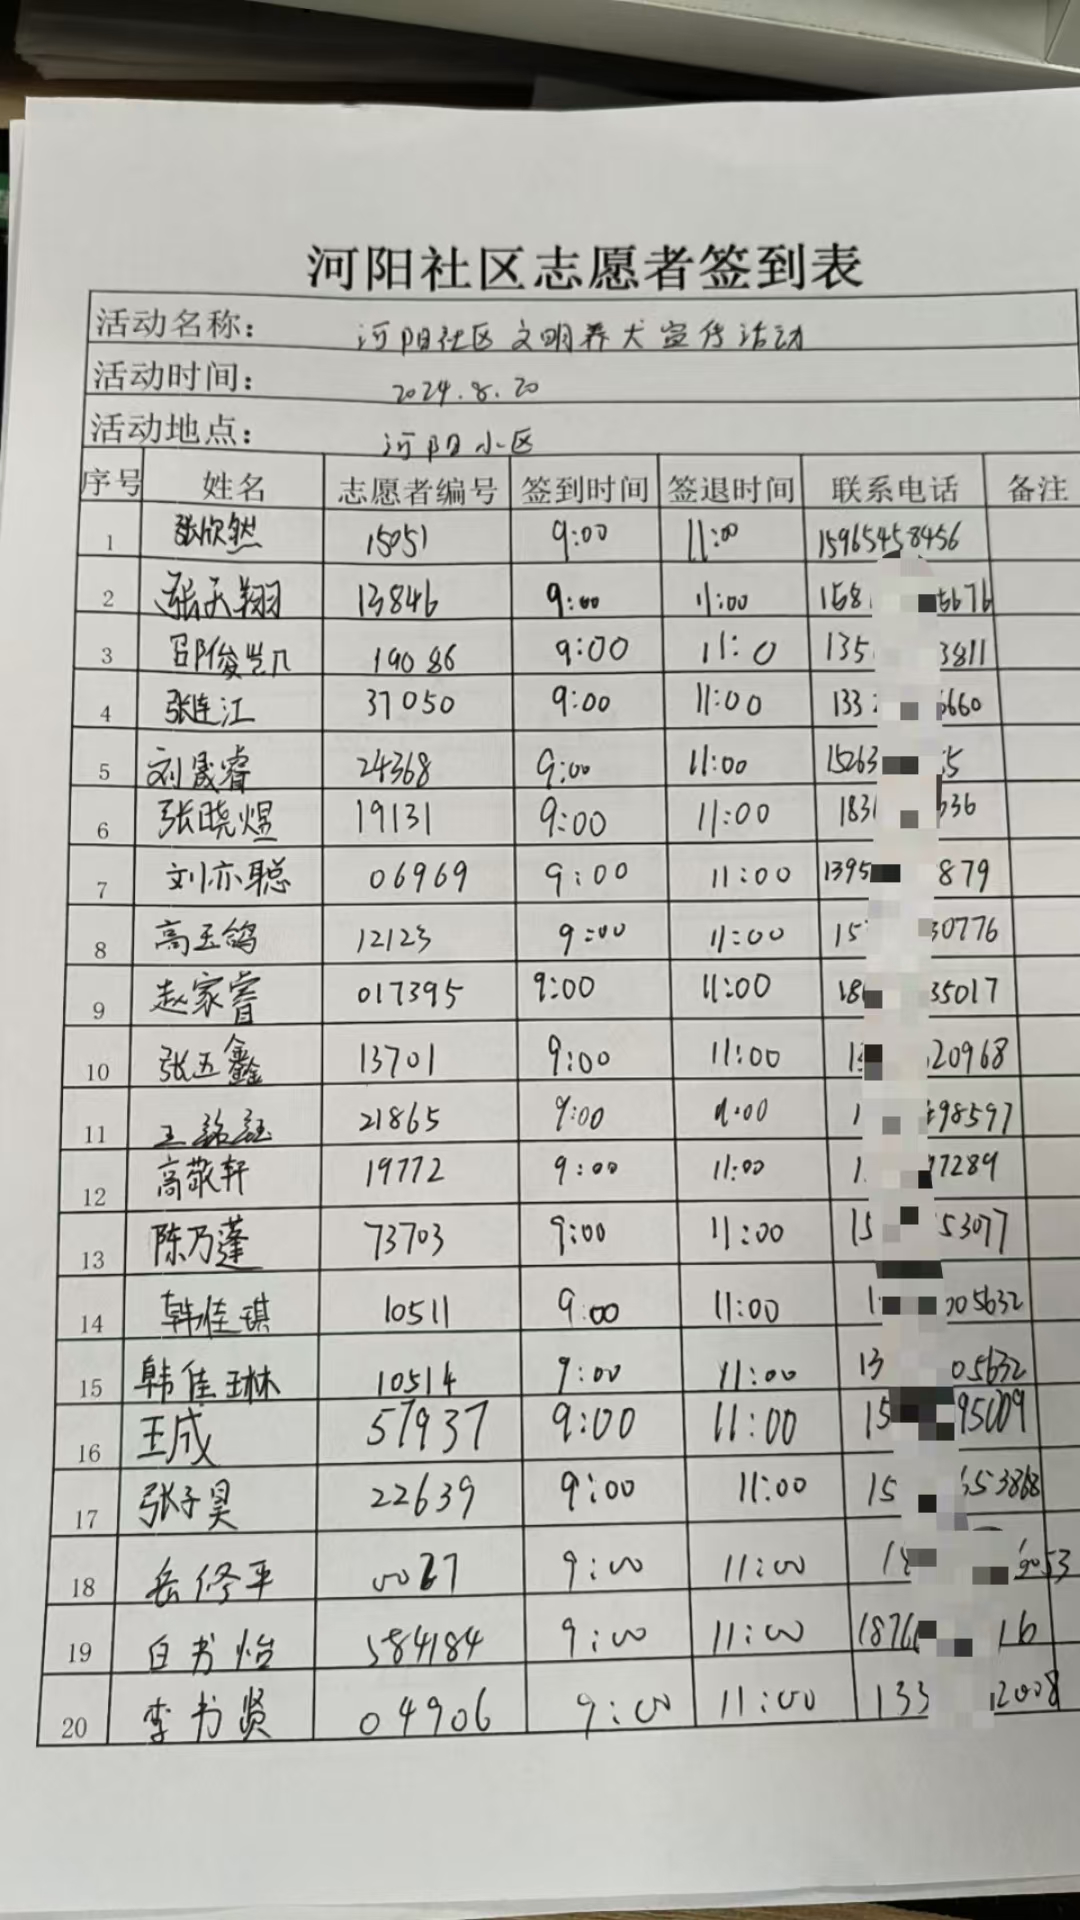 河阳社区志愿者签到表
活动名称： 河阳社区文明养犬宣传活动
活动时间： 2024.8.20
活动地点： 河阳小区
序号 姓名 志愿者编号 签到时间 签退时间 联系电话 备注
1 张欣然 15051 9:00 11:00 15965458456
2 张天翔 13846 9:00 11:00 158 5676
3 邵俊凯 19086 9:00 11:0 135 3811
4 张连江 37050 9:00 11:00 133 6660
5 刘晟睿 24368 9:00 11:00 15263 5
6 张晓煜 19131 9:00 11:00 183 536
7 刘亦聪 06969 9:00 11:00 1395 879
8 高玉鸽 12123 9:00 11:00 15 30776
9 赵家睿 017395 9:00 11:00 18 35017
10 张五鑫 13701 9:00 11:00 1 20968
11 王 21865 9:00 11:00 1 98597
12 高敬轩 19772 9:00 11:00 1 97289
13 陈乃蓬 73703 9:00 11:00 15 53077
14 韩佳琪 10511 9:00 11:00 1 005632
15 韩佳琳 10514 9:00 11:00 13 05632
16 王成 57937 9:00 11:00 15 95009
17 张子昊 22639 9:00 11:00 15 653868
18 岳修平 9:00 11:00 18 9053
19 白书怡 584184 9:00 11:00 1876 16
20 李书贤 04906 9:00 11:00 133 12008